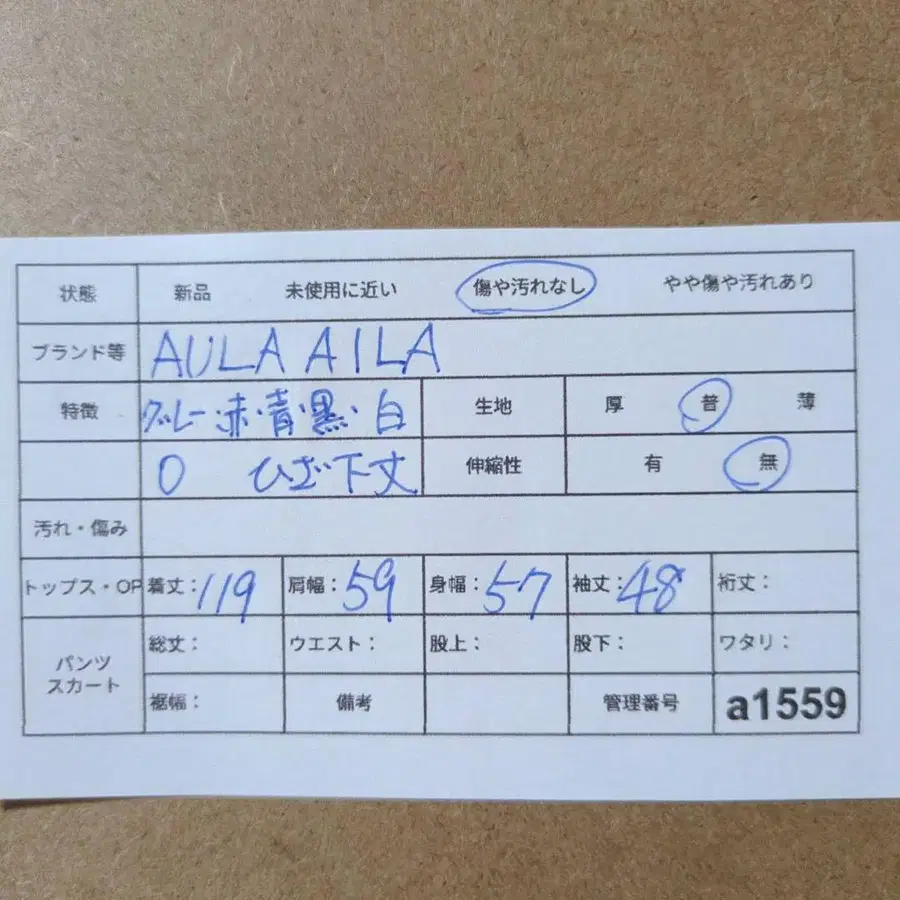 状態 新品 未使用に近い 傷や汚れなし やや傷や汚れあり
ブランド等 AULA AILA
特徴 グレー・赤・青・黒・白 生地 厚 普 薄
0 ひざ下丈 伸縮性 有 無
汚れ・傷み
トップス・OP 着丈:119 肩幅:59 身幅:57 袖丈:48 裄丈:
パンツ スカート 総丈: ウエスト: 股上: 股下: ワタリ:
裾幅: 備考 管理番号 a1559